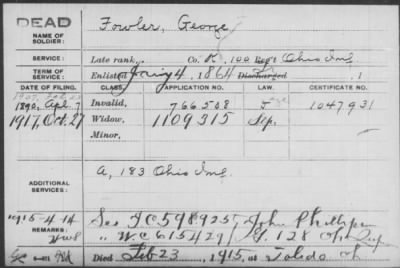 DEAD
NAME OF SOLDIER:
Fowler, George
SERVICE:
Late rank, Co. K, 100 Reg't Ohio Inf.
TERM OF SERVICE:
Enlisted 4, 1864 Discharged , 1
DATE OF FILING. CLASS. APPLICATION NO. LAW. CERTIFICATE NO.
1890, Apl. 7 Invalid, 766508 1047931
1917, Oct. 27 Widow, 1109315 Sep.
Minor,
ADDITIONAL SERVICES:
A, 183 Ohio Inf.
REMARKS:
1915-4-14
See I C 598925, John Phillips
" W C 615429, G. 128 Oh
Died Feb 23, 1915, at Toledo Oh